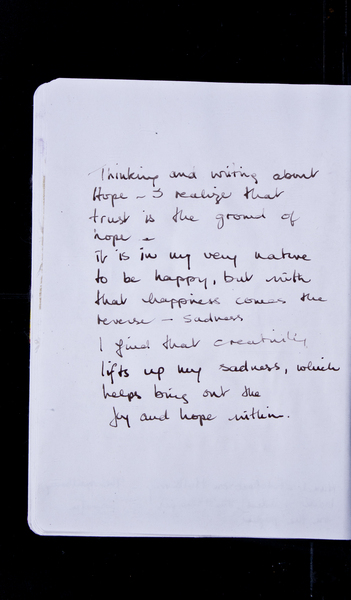 Thinking and writing about
Hope – I realize that
trust is the ground of
hope –
it is in my very nature
to be happy, but with
that happiness comes the
reverse – sadness
I find that creativity
lifts up my sadness, which
helps bring out the
joy and hope within.